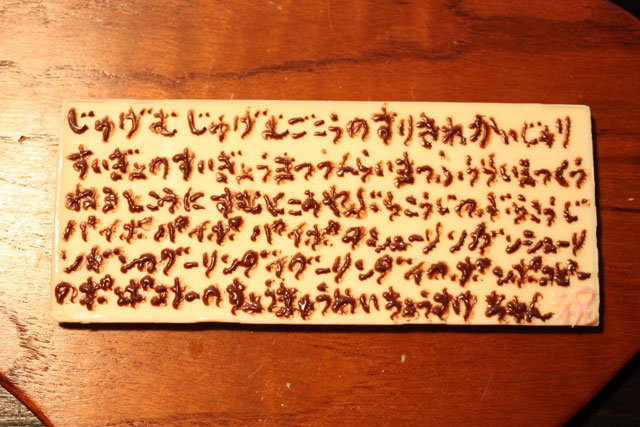 じゅげむ じゅげむ ごこうのすりきれ かいじゃり
すいぎょの すいぎょうまつ うんらいまつ ふうらいまつ くう
ねるところに すむところ やぶらこうじの ぶらこうじ
パイポ パイポ パイポの シューリンガン シューリ
ンガンの グーリンダイ グーリンダイの ポンポコピー
の ポンポコナーの ちょうきゅうめいの ちょうすけ ちゃん
祝